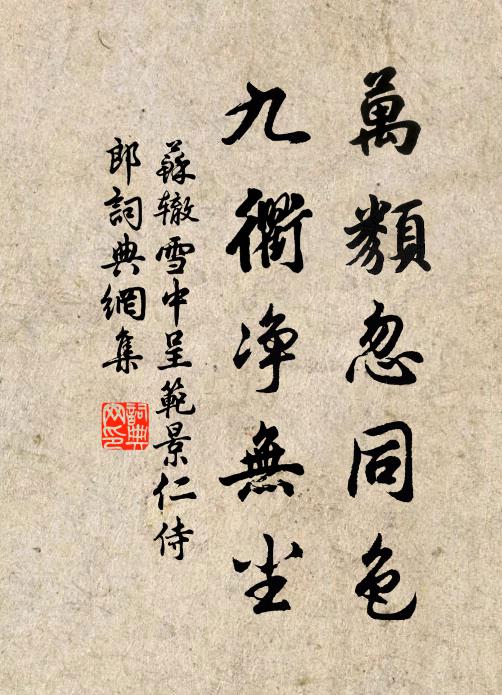 萬類忽同色
九衢净無尘
蘇辙雪中呈範景仁侍
郎詞典網集
詞典
网印